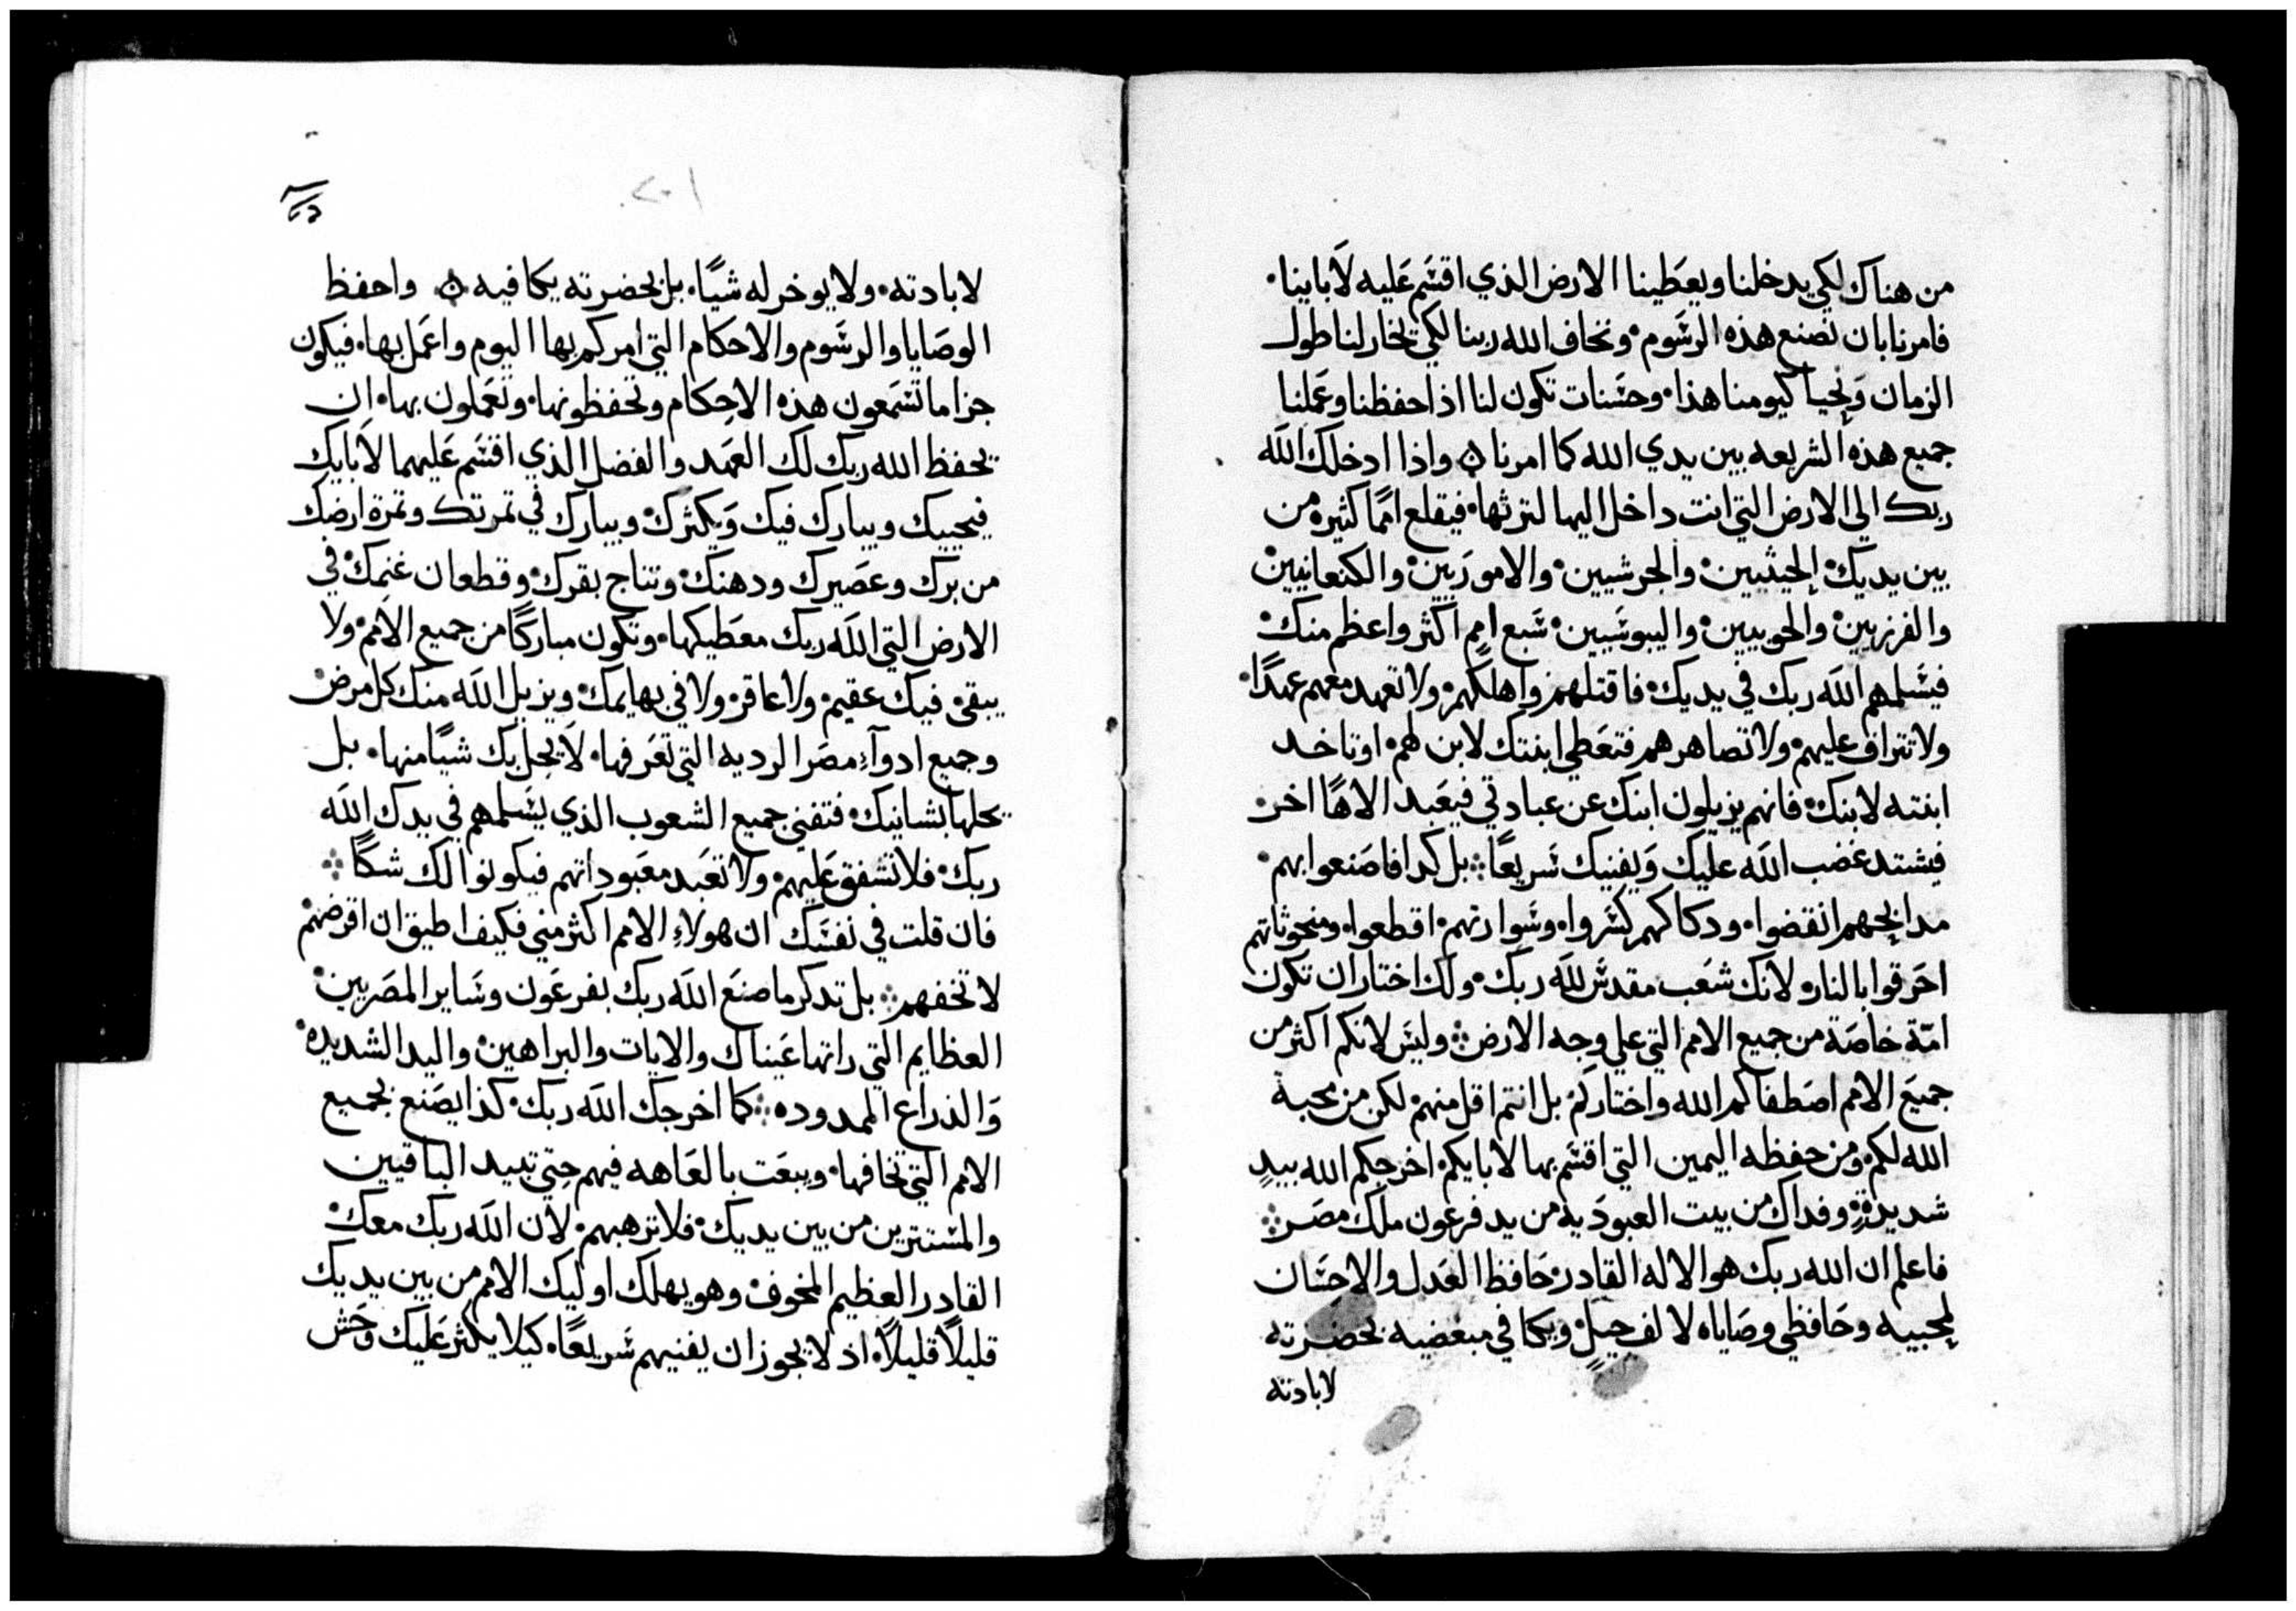 من هناك لكي يدخلنا ويعطينا الارض الذي اقسم عليه لاباينا.
فامرنا بان نصنع هذه الرسوم. ونخاف الله ربنا لكي نختار لنا طول
الزمان ونحيا كيومنا هذا. وحسنات تكون لنا اذا حفظنا وعملنا
جميع هذه الشريعه بين يدي الله كما امرنا ۞ واذا ادخلك الله
ربك الي الارض التي انت داخل اليها لترثها. فيقلع امما كثيره من
بين يديك. الحيثيين. والجرشيين. والاموريين. والكنعانيين.
والفرزيين. والحويين. واليبوسيين. سبع امم اكثر واعظم منك.
فيسلمهم الله ربك في يديك. فاقتلهم واهلكهم. ولا تعهد معهم عهدًا.
ولا تتراف عليهم. ولا تصاهرهم فتعطي ابنتك لابن لهم. او تاخد
ابنته لابنك. فانهم يزيلون ابنك عن عبادتي فيعبد الاهًا اخر.
فيشتد غضب الله عليك ويفنيك سريعًا ⁘ بل كدا فاصنعوا بهم.
مدابحهم انقضوا. ودكاكهم كسروا. وسوارتهم. اقطعوا. ومنحوتاتهم
احرقوا بالنار. لانك شعب مقدس لله ربك. ولك اختار ان تكون
امّة خاصة من جميع الامم التي علي وجه الارض ⁘ وليس لانكم اكثر من
جميع الامم اصطفاكم الله واختاركم. بل انتم اقل منهم. لكن من محبة
الله لكم. ومن حفظه اليمين التي اقسم بها لابايكم. اخرجكم الله بيدٍ
شديدةٍ. وفداك من بيت العبودية من يد فرعون ملك مصر ⁘
فاعلم ان الله ربك هو الاله القادر. حافظ العدل والاحسان
لمحبيه وحافظي وصاياه لالف جيلٍ. ويكافي مبغضيه بحضرته
لابادته
٢٠١
لابادته. ولا يوخر له شيًا. بل بحضرته يكافيه ۞ واحفظ
الوصايا والرسوم والاحكام التي امركم بها اليوم واعمل بها. فيكون
جزا ما تسمعون هذه الاحكام وتحفظونها. وتعملون بها. ان
يحفظ الله ربك لك العهد والفضل الذي اقسم عليهما لابايك
فيحييك ويبارك فيك ويكثرك. ويبارك في تمرتك وتمرة ارضك
من برك وعصيرك ودهنك. ونتاج بقرك. وقطعان غنمك. في
الارض التي الله ربك معطيكها. وتكون مباركًا من جميع الامم. ولا
يبقي فيك عقيم. ولا عاقر. ولا في بهايمك. ويزيل الله منك كل مرض.
وجميع ادوآء مصر الرديه التي تعرفها. لا يحل بك شيًا منها. بل
يحلها بشانيك. فتفني جميع الشعوب الذي يسلمهم في يدك الله
ربك. فلا تشفق عليهم. ولا تعبد معبوداتهم فيكونوا لك شكًا ⁘
فان قلت في نفسك ان هولاءِ الامم اكثر مني فكيف اطيق ان اقرضهم
لا تخفهم ⁘ بل تدكر ما صنع الله ربك بفرعون وساير المصريين.
العظايم التي راتها عيناك والايات والبراهين. واليد الشديده.
والذراع الممدوده ⁘ كما اخرجك الله ربك. كذا يصنع بجميع
الامم التي تخافها. ويبعت بالعاهه فيهم حتي تبيد الباقيين
والمستترين من بين يديك. فلا ترهبهم. لان الله ربك معك.
القادر العظيم المخوف. وهو يهلك اوليك الامم من بين يديك
قليلًا قليلًا. اذ لا يجوز ان يفنيهم سريعًا. كيلا يكثر عليك وحش